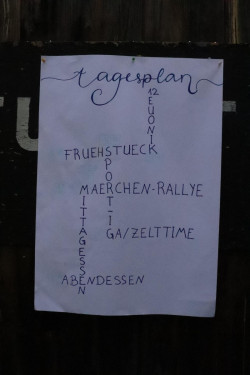 tagesplan
FRUEHSTUECK
MAERCHEN-RALLYE
MITTAGESSEN
GA/ZELTTIME
ABENDESSEN